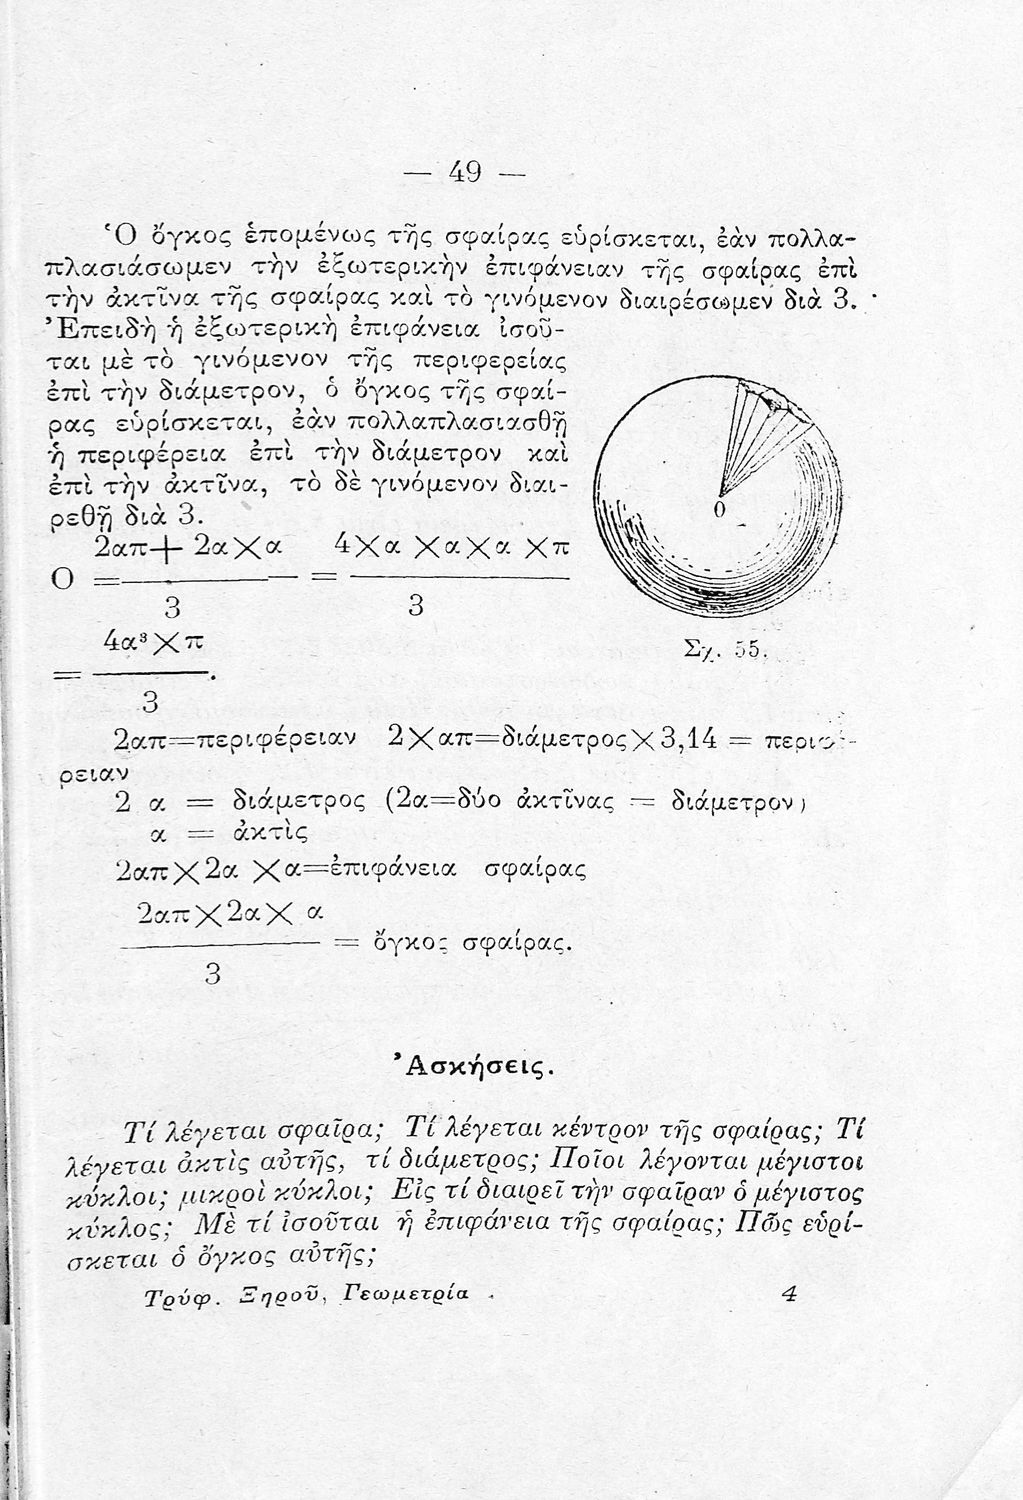 — 49 —
Ὁ ὄγκος ἑπομένως τῆς σφαίρας εὑρίσκεται, ἐὰν πολλα-
πλασιάσωμεν τὴν ἐξωτερικὴν ἐπιφάνειαν τῆς σφαίρας ἐπὶ
τὴν ἀκτῖνα τῆς σφαίρας καὶ τὸ γινόμενον διαιρέσωμεν διὰ 3.
Ἐπειδὴ ἡ ἐξωτερικὴ ἐπιφάνεια ἰσοῦ-
ται μὲ τὸ γινόμενον τῆς περιφερείας
ἐπὶ τὴν διάμετρον, ὁ ὄγκος τῆς σφαί-
ρας εὑρίσκεται, ἐὰν πολλαπλασιασθῇ
ἡ περιφέρεια ἐπὶ τὴν διάμετρον καὶ
ἐπὶ τὴν ἀκτῖνα, τὸ δὲ γινόμενον διαι-
ρεθῇ διὰ 3.
2απ+ 2α×α 4×α ×α×α ×π
Ο = =
3 3
4α³×π
= .
3
Ο
Σχ. 55.
2απ=περιφέρειαν 2×απ=διάμετρος×3,14 = περιφ-
ρειαν
2 α = διάμετρος (2α=δύο ἀκτῖνας = διάμετρον)
α = ἀκτὶς
2απ×2α ×α=ἐπιφάνεια σφαίρας
2απ×2α× α
= ὄγκος σφαίρας.
3
Ἀσκήσεις.
Τί λέγεται σφαῖρα; Τί λέγεται κέντρον τῆς σφαίρας; Τί
λέγεται ἀκτὶς αὐτῆς, τί διάμετρος; Ποῖοι λέγονται μέγιστοι
κύκλοι; μικροὶ κύκλοι; Εἰς τί διαιρεῖ τὴν σφαῖραν ὁ μέγιστος
κύκλος; Μὲ τί ἰσοῦται ἡ ἐπιφάνεια τῆς σφαίρας; Πῶς εὑρί-
σκεται ὁ ὄγκος αὐτῆς;
Τρύφ. Ξηροῦ, Γεωμετρία 4